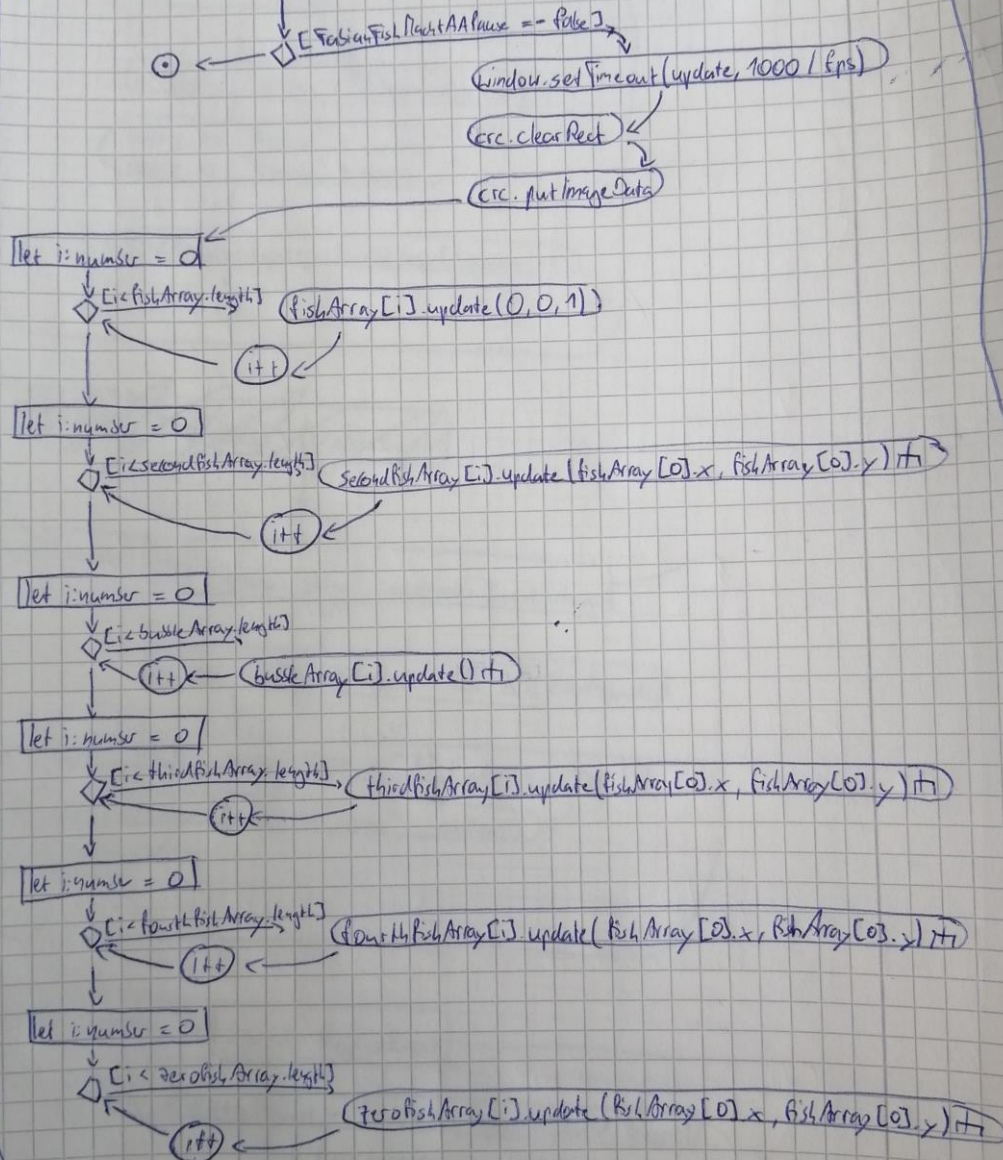 [FabianFishMachtAAPause == false]
window.setTimeout(update, 1000 / fps)
crc.clearRect
crc.putImageData
let i:number = 0
[i<fishArray.length]
fishArray[i].update(0,0,1)
i++
let i:number = 0
[i<secondfishArray.length]
secondfishArray[i].update(fishArray[0].x, fishArray[0].y)
i++
let i:number = 0
[i<bubbleArray.length]
i++
bubbleArray[i].update()
let i:number = 0
[i<thirdfishArray.length]
thirdfishArray[i].update(fishArray[0].x, fishArray[0].y)
i++
let i:number = 0
[i<fourthfishArray.length]
fourthfishArray[i].update(fishArray[0].x, fishArray[0].y)
i++
let i:number = 0
[i< zerofishArray.length]
zerofishArray[i].update(fishArray[0].x, fishArray[0].y)
i++